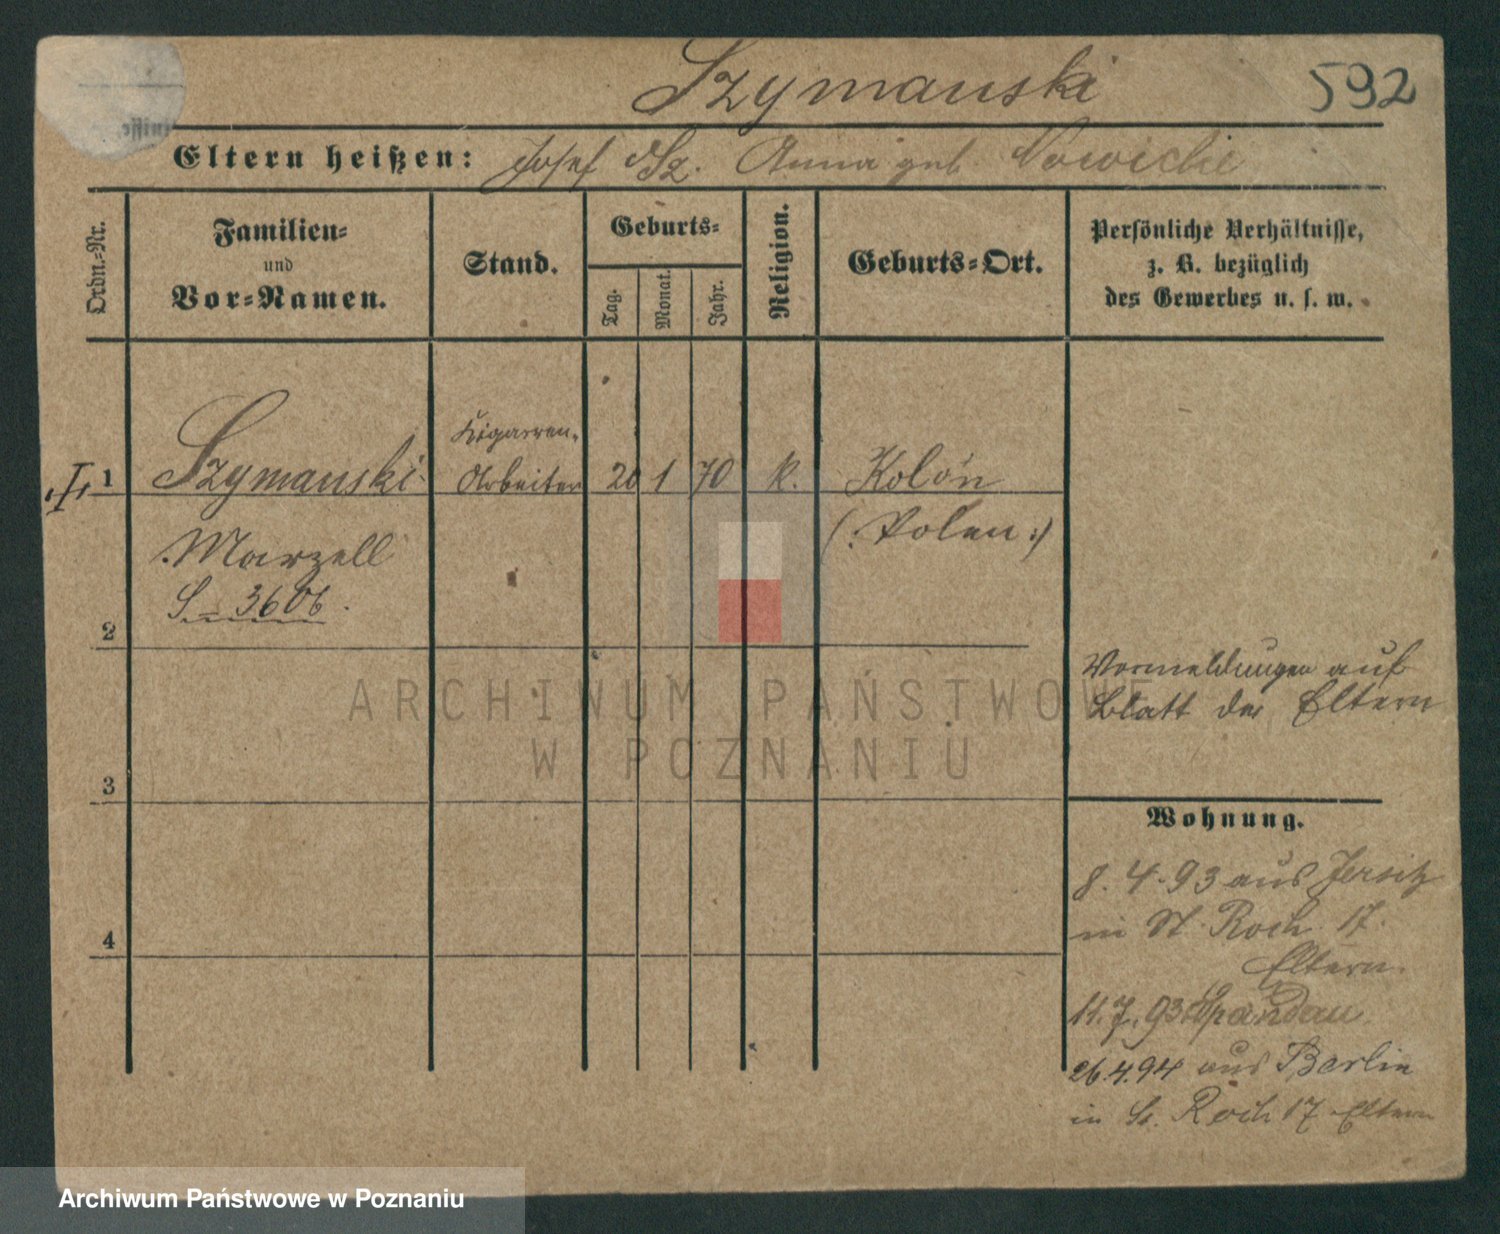 Szymanski 592
Eltern heißen: Josef Sz. Anna geb Nowicki
Ordn.-Nr.
Familien-
und
Vor-Namen.
Stand.
Geburts-
Tag.
Monat.
Jahr.
Religion.
Geburts-Ort.
Persönliche Verhältnisse,
z. B. bezüglich
des Gewerbes u. s. w.
1 Szymanski Zigarren-
Arbeiter 20 1 70 k. Kolón
(: Polen :)
Marzell
S = 3606.
2
Vormeldungen auf
Blatt der Eltern
3
Wohnung.
8. 4. 93 aus Jersitz
in St. Roch. 17.
Eltern.
4
11. 7. 93 Spandau
26.4.94 aus Berlin
in St. Roch 17 Eltern
ARCHIWUM PAŃSTWOWE
W POZNANIU
Archiwum Państwowe w Poznaniu